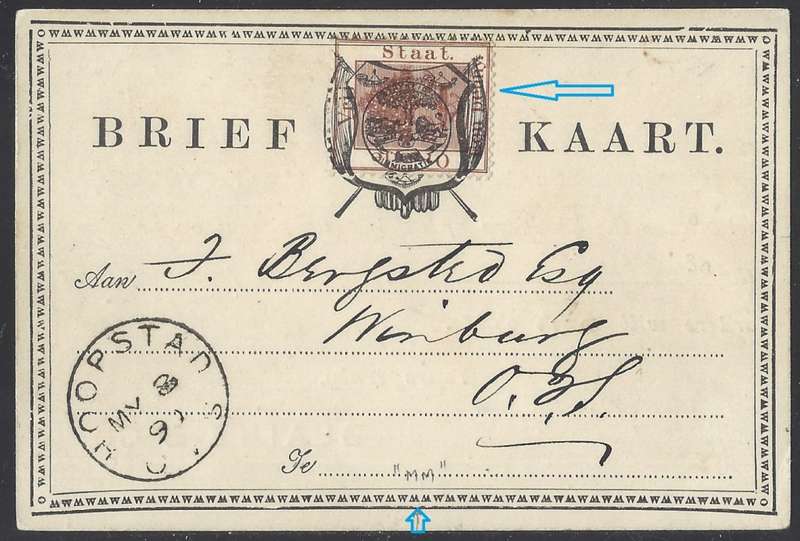 Staat.
BRIEF KAART.
Aan J. Bergsted Esq
Winburg
O.F.S.
HOOPSTAD O.F.S
MY 8
9
Te "MM"